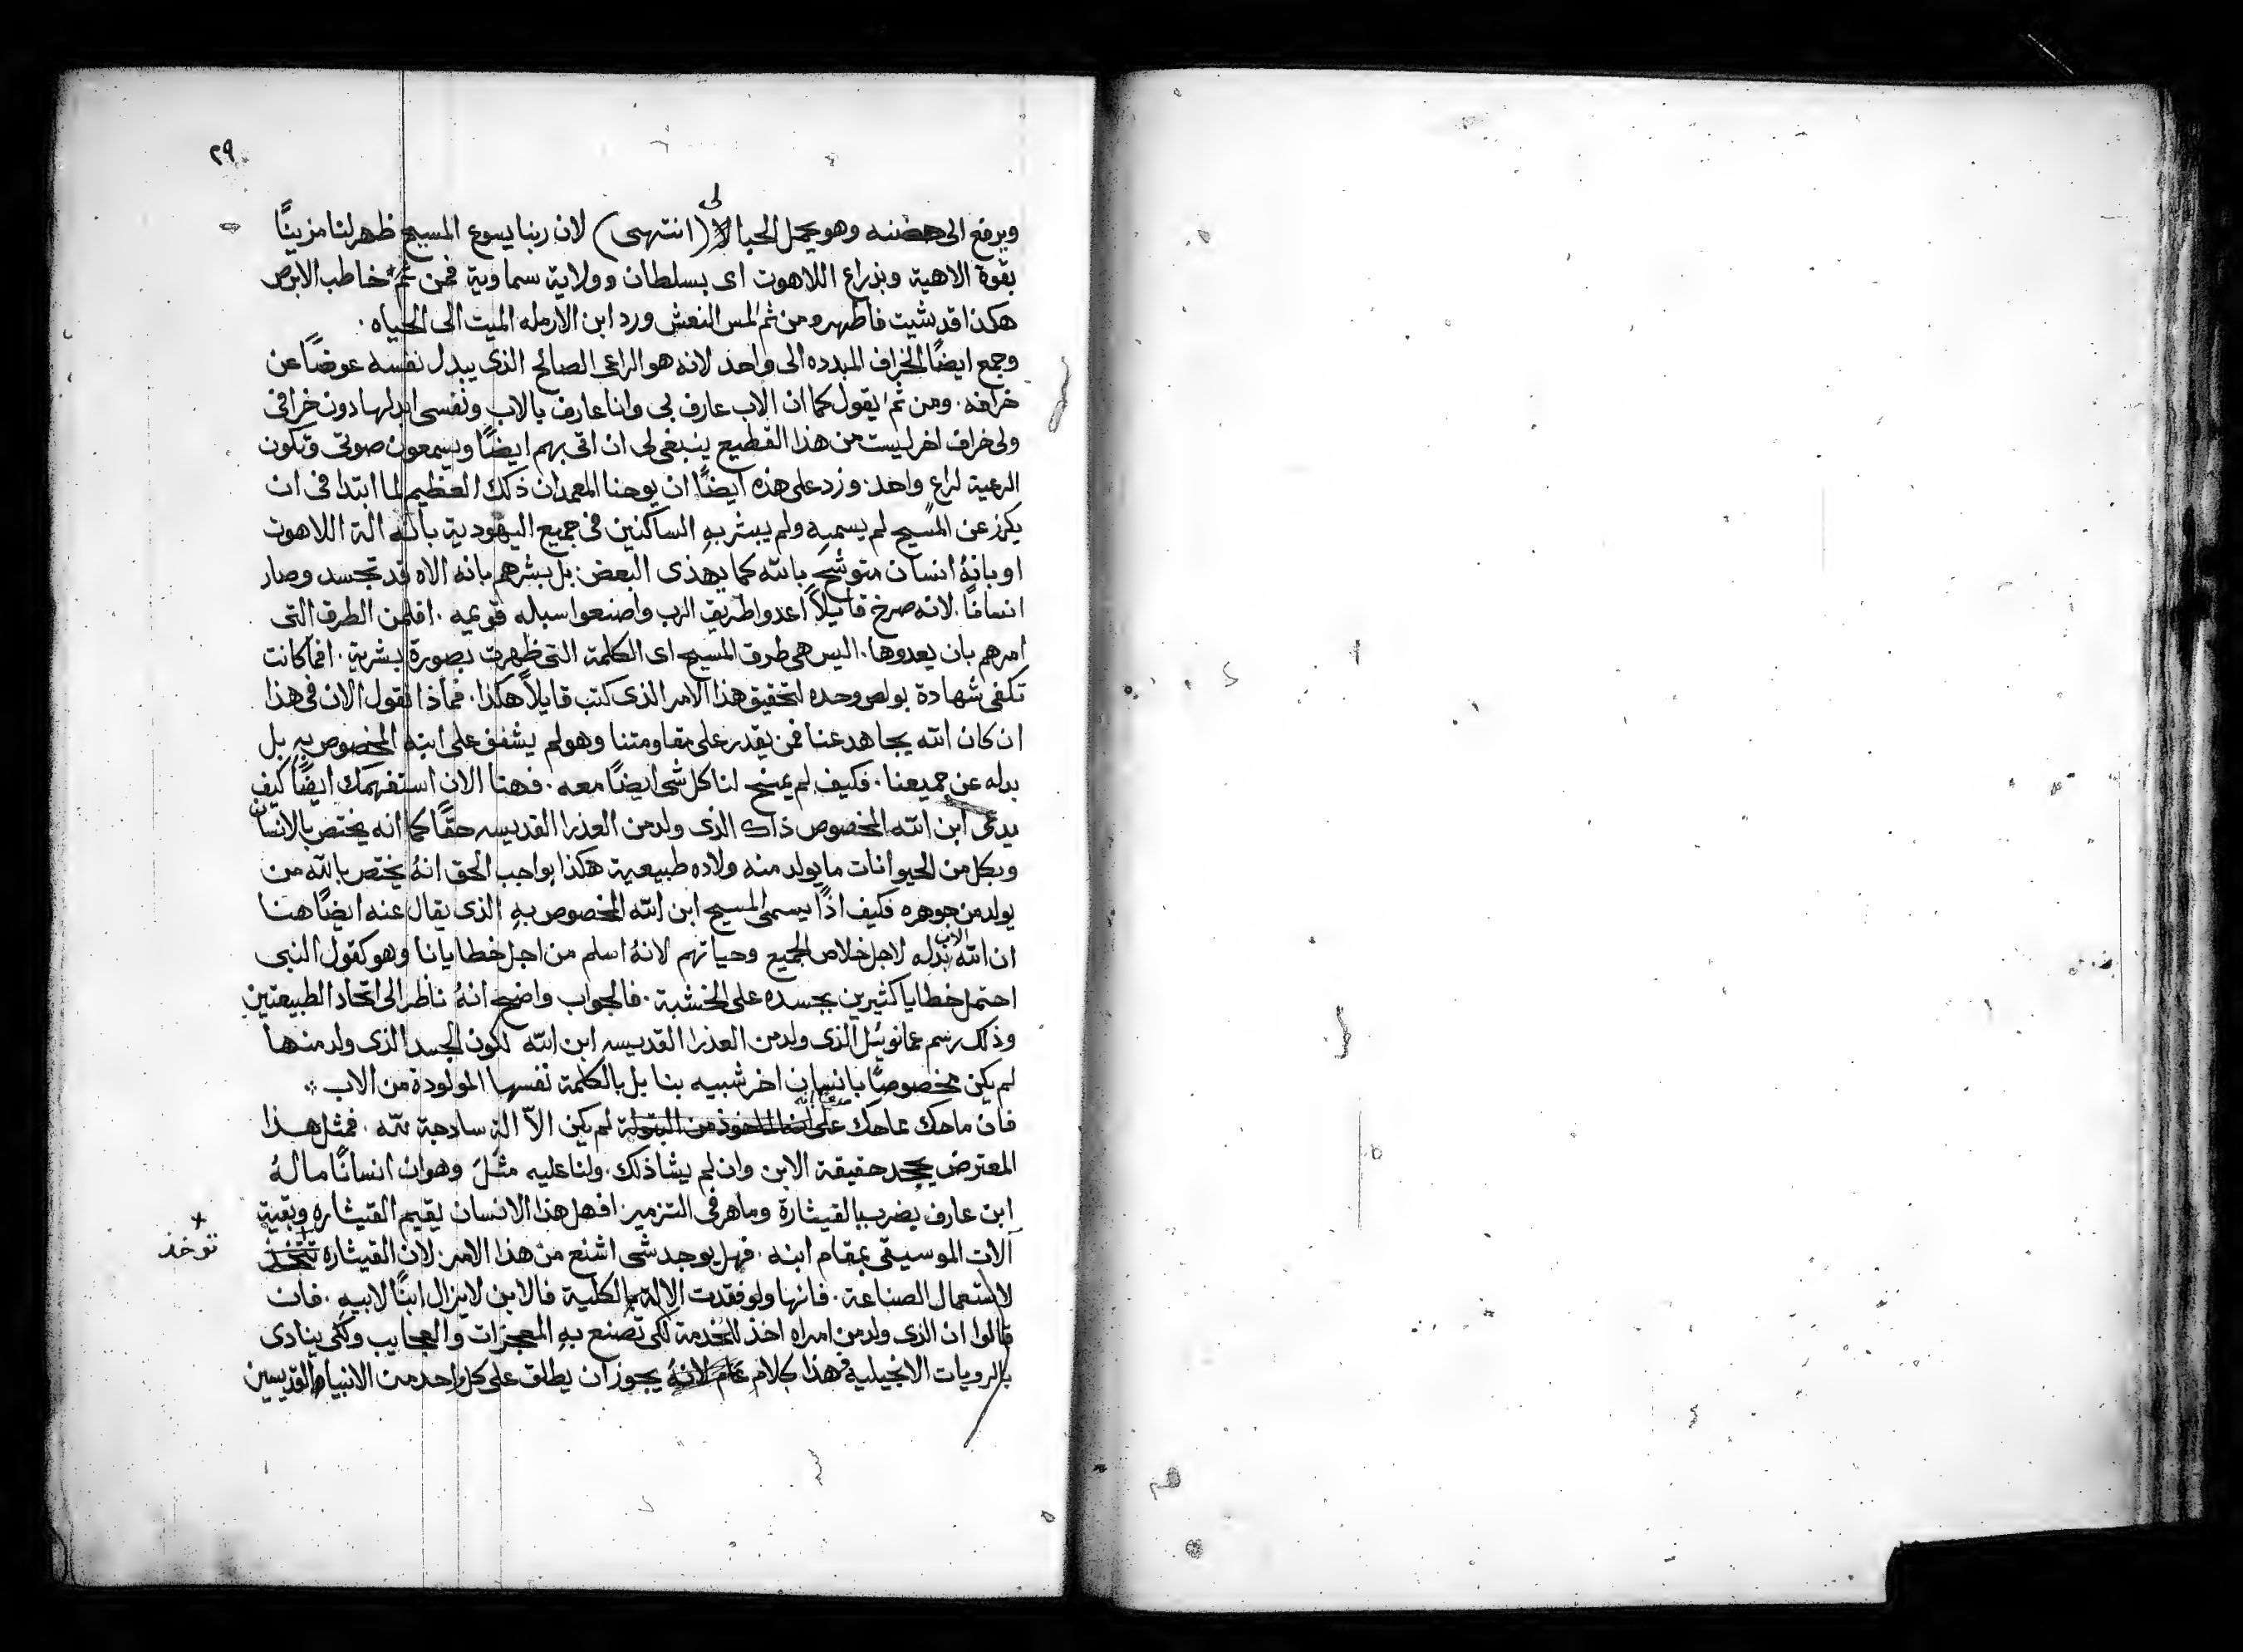 ٢٩
لى
ويرفع الى حضنه وهو يحمل الحبالا (انتهى) لان ربنا يسوع المسيح ظهر لنا مزينًا
بقوة الاهية وبذراع اللاهوت اى بسلطان وولاية سماوية فمن ثم خاطب الابرص
هكذا قد شيت فاطهر ومن ثم لمس النعش ورد ابن الارمله الميت الى الحياه .
وجمع ايضًا الخراف المبدده الى واحد لانه هو الراعى الصالح الذى يبدل نفسه عوضًا عن
خرافه . ومن ثم يقول كما ان الاب عارف بى وانا عارف بالاب ونفسى ابدلها دون خرافى
ولى خراف اخر ليست من هذا القطيع ينبغى لى ان اتى بهم ايضًا ويسمعون صوتى وتكون
الرعية لراع واحد . وزد على هذه ايضًا ان يوحنا المعمدان ذلك العظيم لما ابتدا فى ان
يكرز عن المسيح لم يسميه ولم يبشر به الساكنين فى جميع اليهودية بانه الة اللاهوت
او بانهُ انسان متوشح بالله كما يهذى البعض . بل بشرهم بانه الاه قد تجسد وصار
انسانًا . لانه صرخ قايلاً اعدوا طريق الرب واصنعوا سبله قويمه . افلمن الطرق التى
امرهم بان يعدوها . اليس هى طرق المسيح اى الكلمة التى ظهرت بصورة بشرية . افما كانت
تكفى شهادة بولص وحده لتحقيق هذا الامر الذى كتب قايلاً هكذا . فماذا نقول الان فى هذا
ان كان الله يجاهد عنا فمن يقدر على مقاومتنا وهو لم يشفق على ابنه المخصوص به بل
بدله عن جميعنا . فكيف لم يمنح لنا كل شى ايضًا معه . فهنا الان استفهمك ايضًا كيف
يدعى ابن الله المخصوص ذاك الذى ولد من العذرا القديسه حقًا كما انه يختص بالانسان
وبكل من الحيوانات ما يولد منه ولاده طبيعية هكذا بواجب الحق انهُ يختص بالله من
يولد من جوهره فكيف اذًا يسمى المسيح ابن الله المخصوص به الذى يقال عنه ايضًا هنا
الاب
ان الله بدله لاجل خلاص الجميع وحياتهم لانهُ اسلم من اجل خطايانا وهو كقول النبى
احتمل خطايا كثيرين بجسده على الخشبة . فالجواب واضح انهُ ناظر الى اتحاد الطبيعتين
وذلك رسم عمانوئيل الذى ولد من العذرا القديسه ابن الله لكون الجسد الذى ولد منها
لم يكن مخصوصًا بانسان اخر شبيه بنا بل بالكلمة نفسها المولودة من الاب
فان ماحك ماحك على الماخوذ من البتولة لم يكن الاّ الة سادجة لله . فمثل هذا
المعترض يجحد حقيقة الابن وان لم يشا ذلك . ولنا عليه مثل وهو ان انسانًا ما لهُ
ابن عارف يضرب بالقيثارة وماهر فى التزمير . افهل هذا الانسان يقيم القيثاره وبقية
آلات الموسيقى بمقام ابنه . فهل يوجد شى اشنع من هذا الامر . لان القيثاره تتخذ
توخذ
لاستعمال الصناعة . فانها ولو فقدت الالة بالكلية فالابن لا يزال ابنًا لابيه . فان
قالوا ان الذى ولد من امراه اخذ للخدمة لكى تصنع به المعجزات والعجايب ولكى ينادى
بالرويات الانجيلية فهذا كلام عام لانهُ يجوز ان يطلق على كل واحد من الانبيا والقديسين